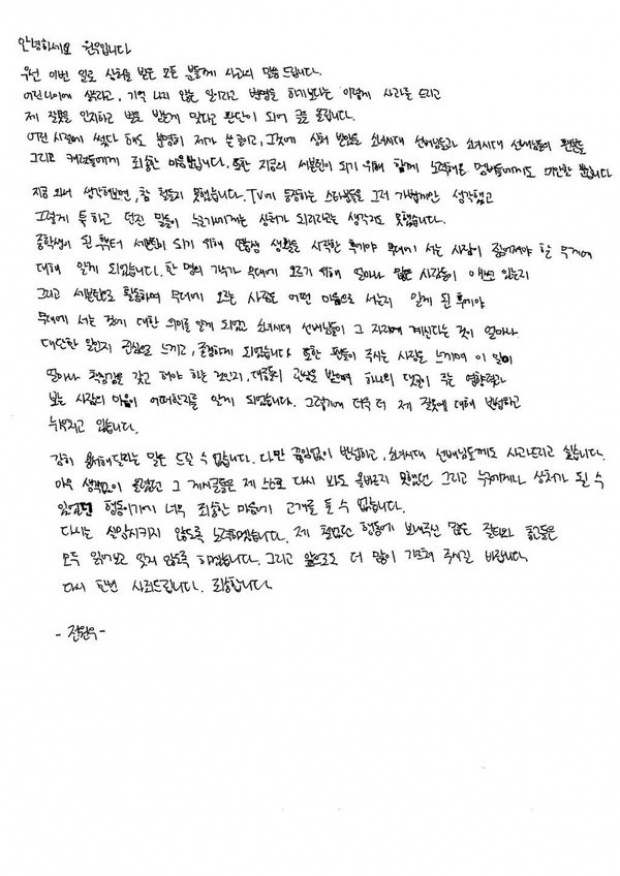 안녕하세요 원우입니다
우선 이번 일로 상처를 받은 모든 분들께 사과의 말씀 드립니다.
어린나이에 썼다고, 기억 나지 않는 일이라고 변명을 하기보다는 이렇게 사과를 드리고
제 잘못을 인지하고 벌을 받는게 맞다고 판단이 되어 글을 올립니다.
어떤 시점에 썼다 해도 분명히 제가 쓴 글이고, 그것에 상처 받았을 소녀시대 선배님들과 소녀시대 선배님들의 팬분들
그리고 캐럿들에게 죄송한 마음뿐입니다. 또한 지금의 세븐틴이 되기 위해 함께 노력해온 멤버들에게도 미안할 뿐입니다
지금 와서 생각해보면, 참 철등지 못했습니다. TV에 등장하는 스타분들을 그저 가볍게만 생각했고
그렇게 툭 하고 던진 말들이 누군가에게는 상처가 되리라는 생각지도 못했습니다.
중학생이 된 후부터 세븐틴이 되기 위해 연습생 생활을 시작한 후에야 무대에 서는 사람이 짊어져야 할 무게에
대해 알게 되었습니다. 한 명의 가수가 무대에 오르기 위해 얼마나 많은 사람들이 애쓰고 있는지
그리고 세븐틴으로 활동하며 무대에 오르는 사람은 어떤 마음으로 서는지 알게 된 후에야
무대에 서는 것에 대한 의미를 알게 되었고 소녀시대 선배님들이 그 자리에 계신다는 것이 얼마나
대단한 일인지 진심으로 느끼고, 존경하게 되었습니다 또한 팬들이 주시는 사랑을 느끼며 이 일이
얼마나 책임감을 갖고 해야 하는 것인지, 대중들의 관심을 받으며 하나의 댓글이 주는 영향력과
보는 사람의 마음이 어떠한지를 알게 되었습니다. 그렇기에 더욱 더 제 잘못에 대해 반성하고
뉘우치고 있습니다.
감히 용서해달라는 말은 드릴 수 없습니다. 다만 끊임없이 반성하고, 소녀시대 선배님들께도 사과드리고 싶습니다.
아무 생각없이 올렸던 그 게시글들은 제 스스로 다시 봐도 올바르지 못했던 그리고 누구에게나 상처가 될 수
있었던 행동이기에 너무 죄송한 마음에 고개를 들 수 없습니다.
다시는 실망시키지 않도록 노력하겠습니다. 제 철없던 행동에 보내주신 많은 질타와 충고들은
모두 읽어보고 잊지 않도록 하겠습니다. 그리고 앞으로도 더 많이 가르쳐 주시길 바랍니다
다시 한번 사죄드립니다. 죄송합니다.
- 전원우 -